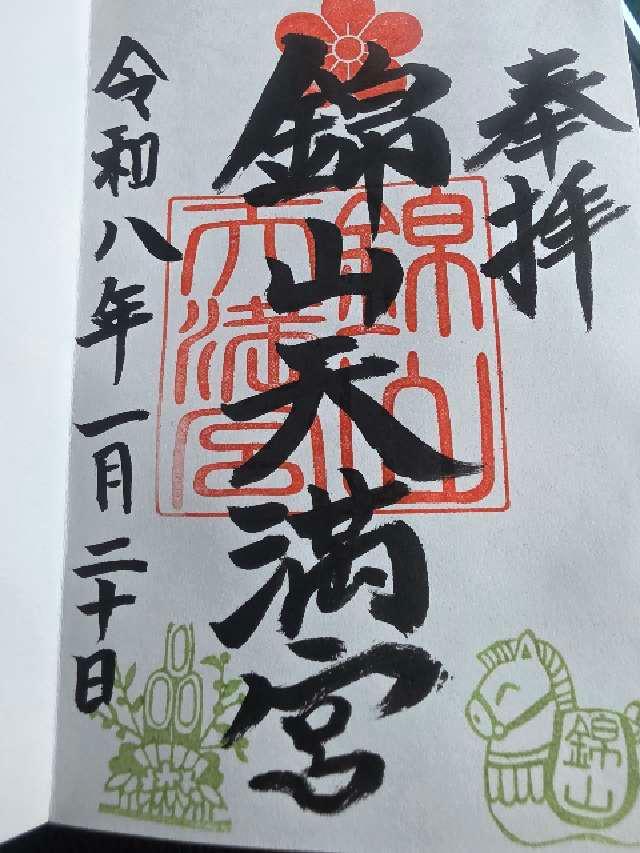 奉拝
錦山天満宮
錦山
天満宮
令和八年一月二十日
錦山